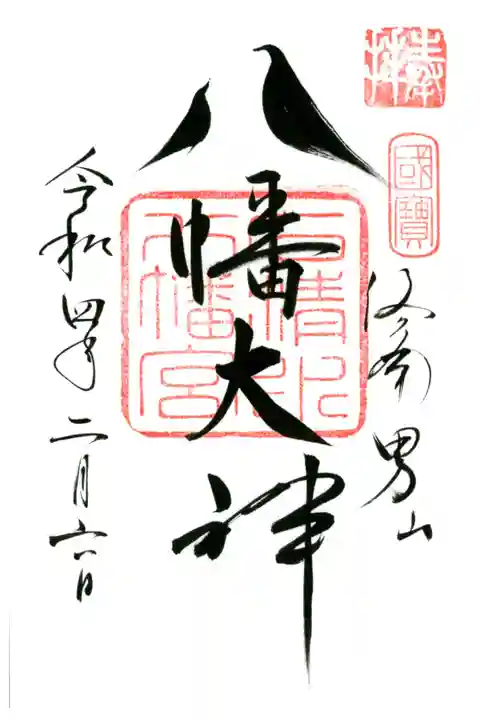 奉拝
國寶
男山
八幡大神
石清水
八幡宮
令和四年二月六日